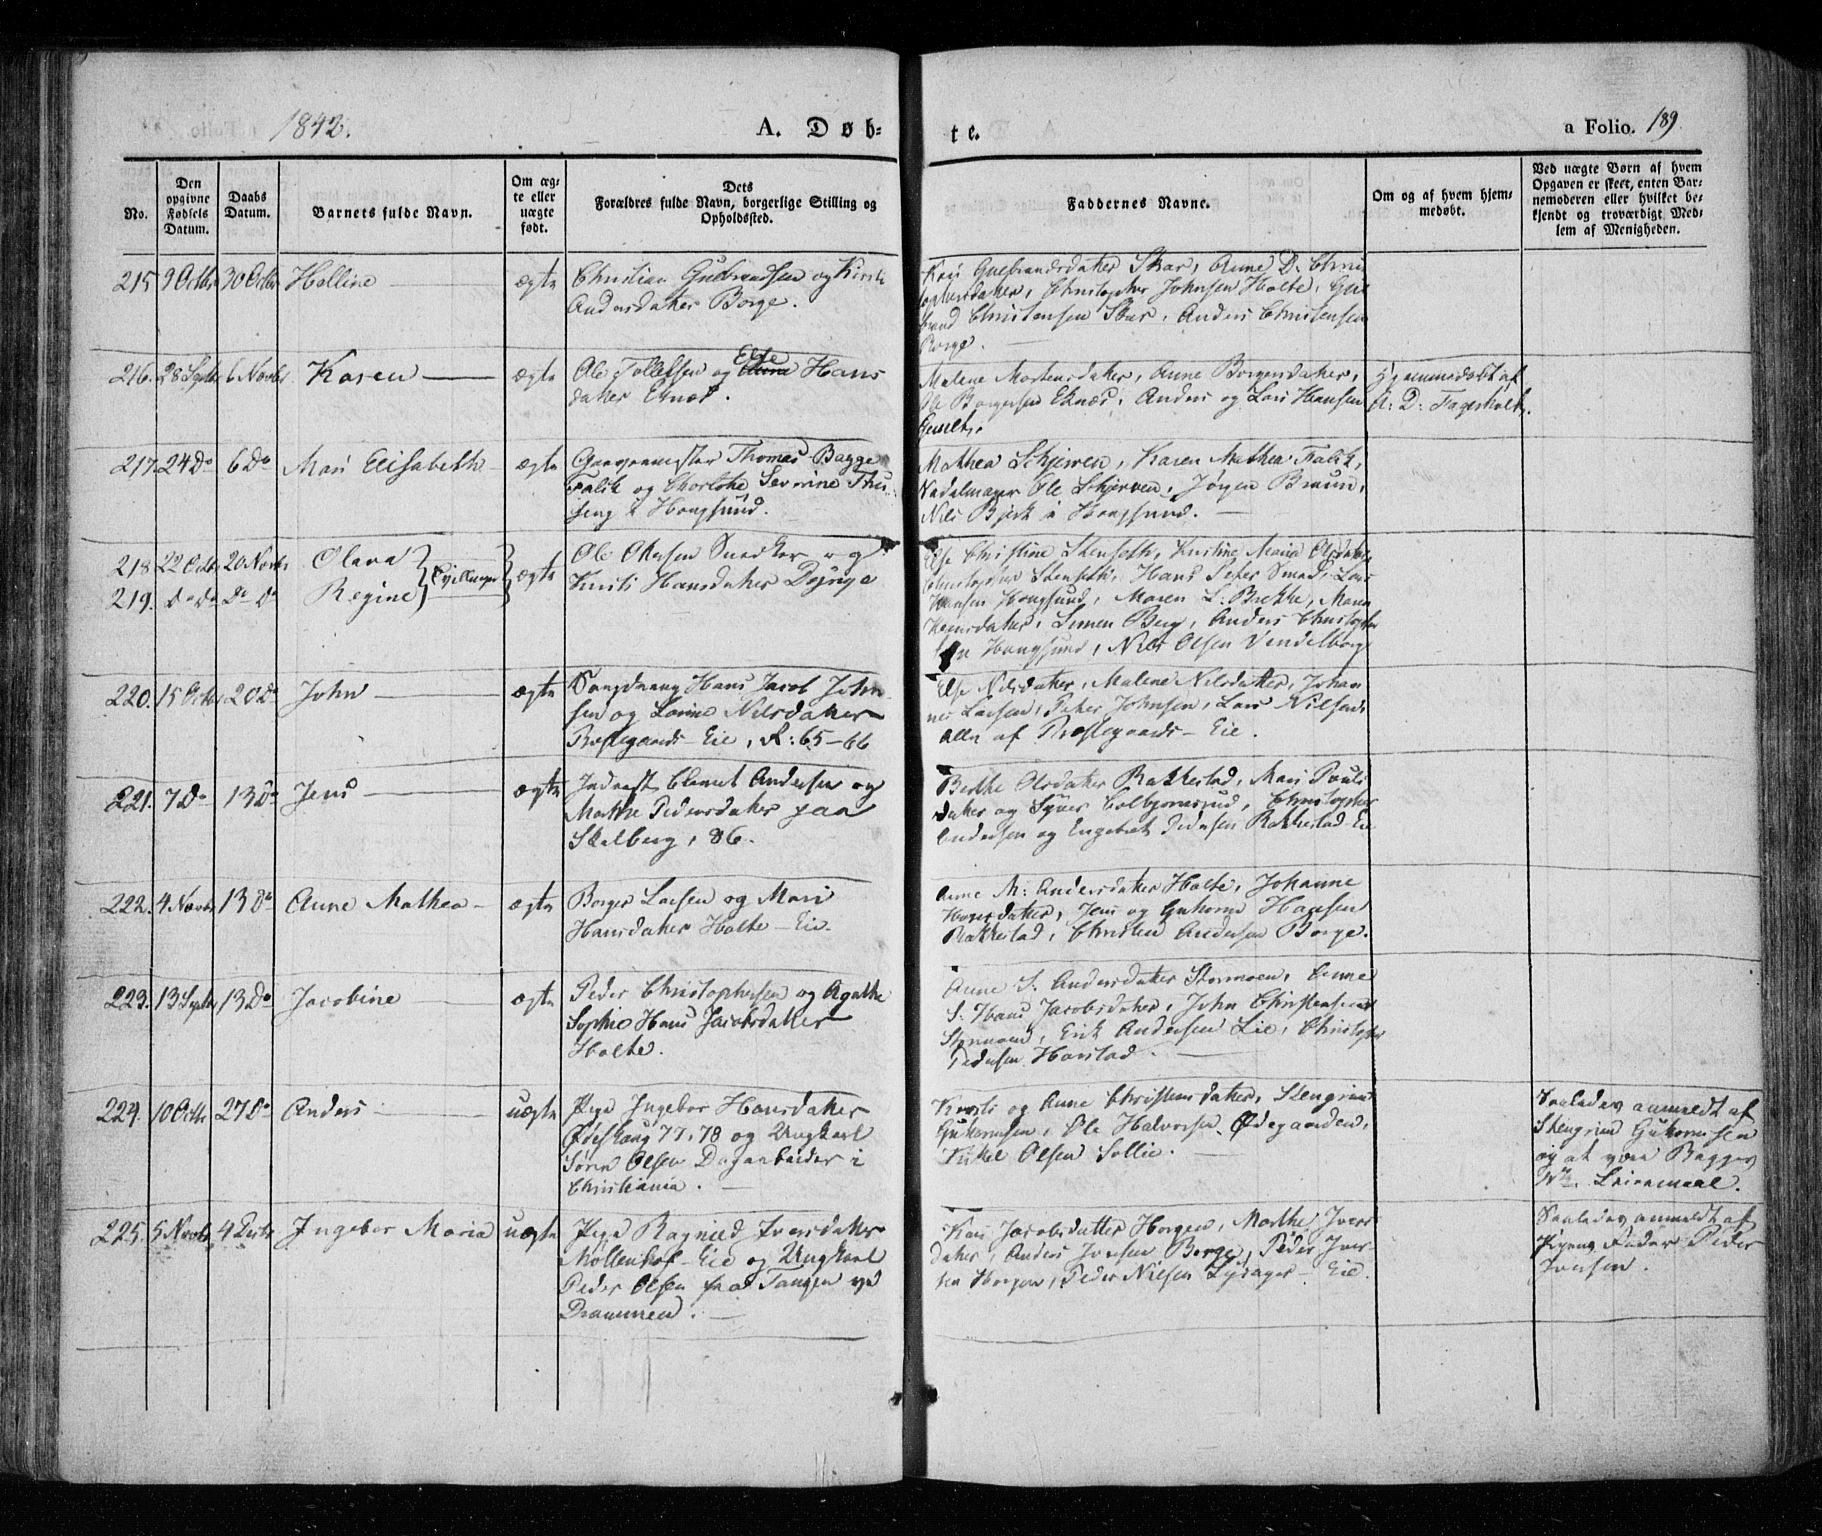 1842.
A. Døb-
te.
a Folio. 189
No.
Den opgivne Fødsels Datum.
Daabs Datum.
Barnets fulde Navn.
Om ægte eller uægte født.
Dets Forældres fulde Navn, borgerlige Stilling og Opholdssted.
Faddernes Navne.
Om og af hvem hjemmedøbt.
Ved uægte Børn af hvem Opgaven er skeet, enten Barnemoderen eller hvilket bekjendt og troværdigt Medlem af Menigheden.
215 9 Octbr 30 Octbr
ægte
Christian Gulbrandsen og Kirsti
Andersdatter Borge.
Kari Gulbrandsdatter Skar, Anne D. Chris
tophersdatter, Christopher Johnsen Holte, Gul
brand Christensen Skar, Anders Christensen
Borge.
216. 28 Septbr 6 Novbr Karen
ægte
Ole Tollefsen og Else Hans
datter Eknæs.
Malene Mortensdatter, Anne Borgersdatter,
Ole Borgersen Eknæs, Anders og Lars Hansen
Hjemmedøbt af
A: D: Fagerholt.
217. 24 Do 6 Do Mari Elisabeth
ægte
Thomas Bagge
Falck og Severine
Hougsund.
Mathea Skjerven, Karen Mathea Falck,
Sadelmager Ole Skjerven, Jørgen Bruun,
Nils Bjerk i Hougsund.
218 22 Octbr 20 Novbr Olava
219. Do Do Do Do Regine
Tvillinger
ægte
Ole Olsen Snedker og
Kirsti Hansdatter
Else Christine Stenseth, Kristine Maria Olsdatter
Christopher Stenseth, Hans Peter Smed, Lars
Hansen Hougsund, Maren L. Brekke, Maren
Simen Berg, Anders Christopher
sen Hougsund, Nils Olsen Vendelborg
220. 15 Octbr 20 Do John
ægte
Hans Jacob John
sen og Nilsdatter
Præstegaards-Eie, R: 65-66
Else Nilsdatter, Malene Nilsdatter, Johan
nes Larsen, Peter Johnsen, Lars Nilsen,
alle af Præstegaards-Eie.
221. 7 Do 13 Do Jens
ægte
Inderst Clemet Andersen og
Marthe Pedersdatter paa
Skalberg, 86.
Berthe Olsdatter Rakkestad, Mari Pouls
datter og Syver Colbjørnsrud, Christopher
Andersen og Engebret Pedersen Rakkestad Eie
222. 4 Novbr 13 Do Anne Mathea
ægte
Borger Larsen og Mari
Hansdatter Holte-Eie.
Anne M: Andersdatter Holte, Johanne
Jens og Guttorm Hansen
Rakkestad, Christen Andersen Borge.
223. 13 Septbr 13 Do Jacobine
ægte
Peder Christophersen og Agathe
Sophie Hans Jacobsdatter
Holte.
Anne S. Andersdatter Stormoen, Anne
S. Hans Jacobsdatter, John Christensen
Stormoen, Erik Andersen Lie, Christopher
Pedersen Harstad.
224. 10 Octbr 27 Do Anders
uægte
Pige Ingebor Hansdatter
77, 78 og Ungkarl
Søren Olsen Dagarbeider i
Christiania.
Kirsti og Anne Christensdatter, Stengrim
Guttormsen, Ole Halvorsen Ødegaarden,
Mikkel Olsen Sollie.
Saaledes anmeldt af
Stengrim Guttormsen
og at være Begges
Leiermaal.
225. 5 Novbr 4 Decbr Ingebor Maria
uægte
Pige Ragnild Iversdatter
Møllenhof-Eie og Ungkarl
Peder Olsen fra Tangen ved
Drammen.
Kari Jacobsdatter Horgen, Marthe Ivers
datter, Anders Iversen Borge, Peder Iver-
sen Horgen, Peder Nielsen Lysager-Eie.
Saaledes anmeldt af
Pigens Fader Peder
Iversen.